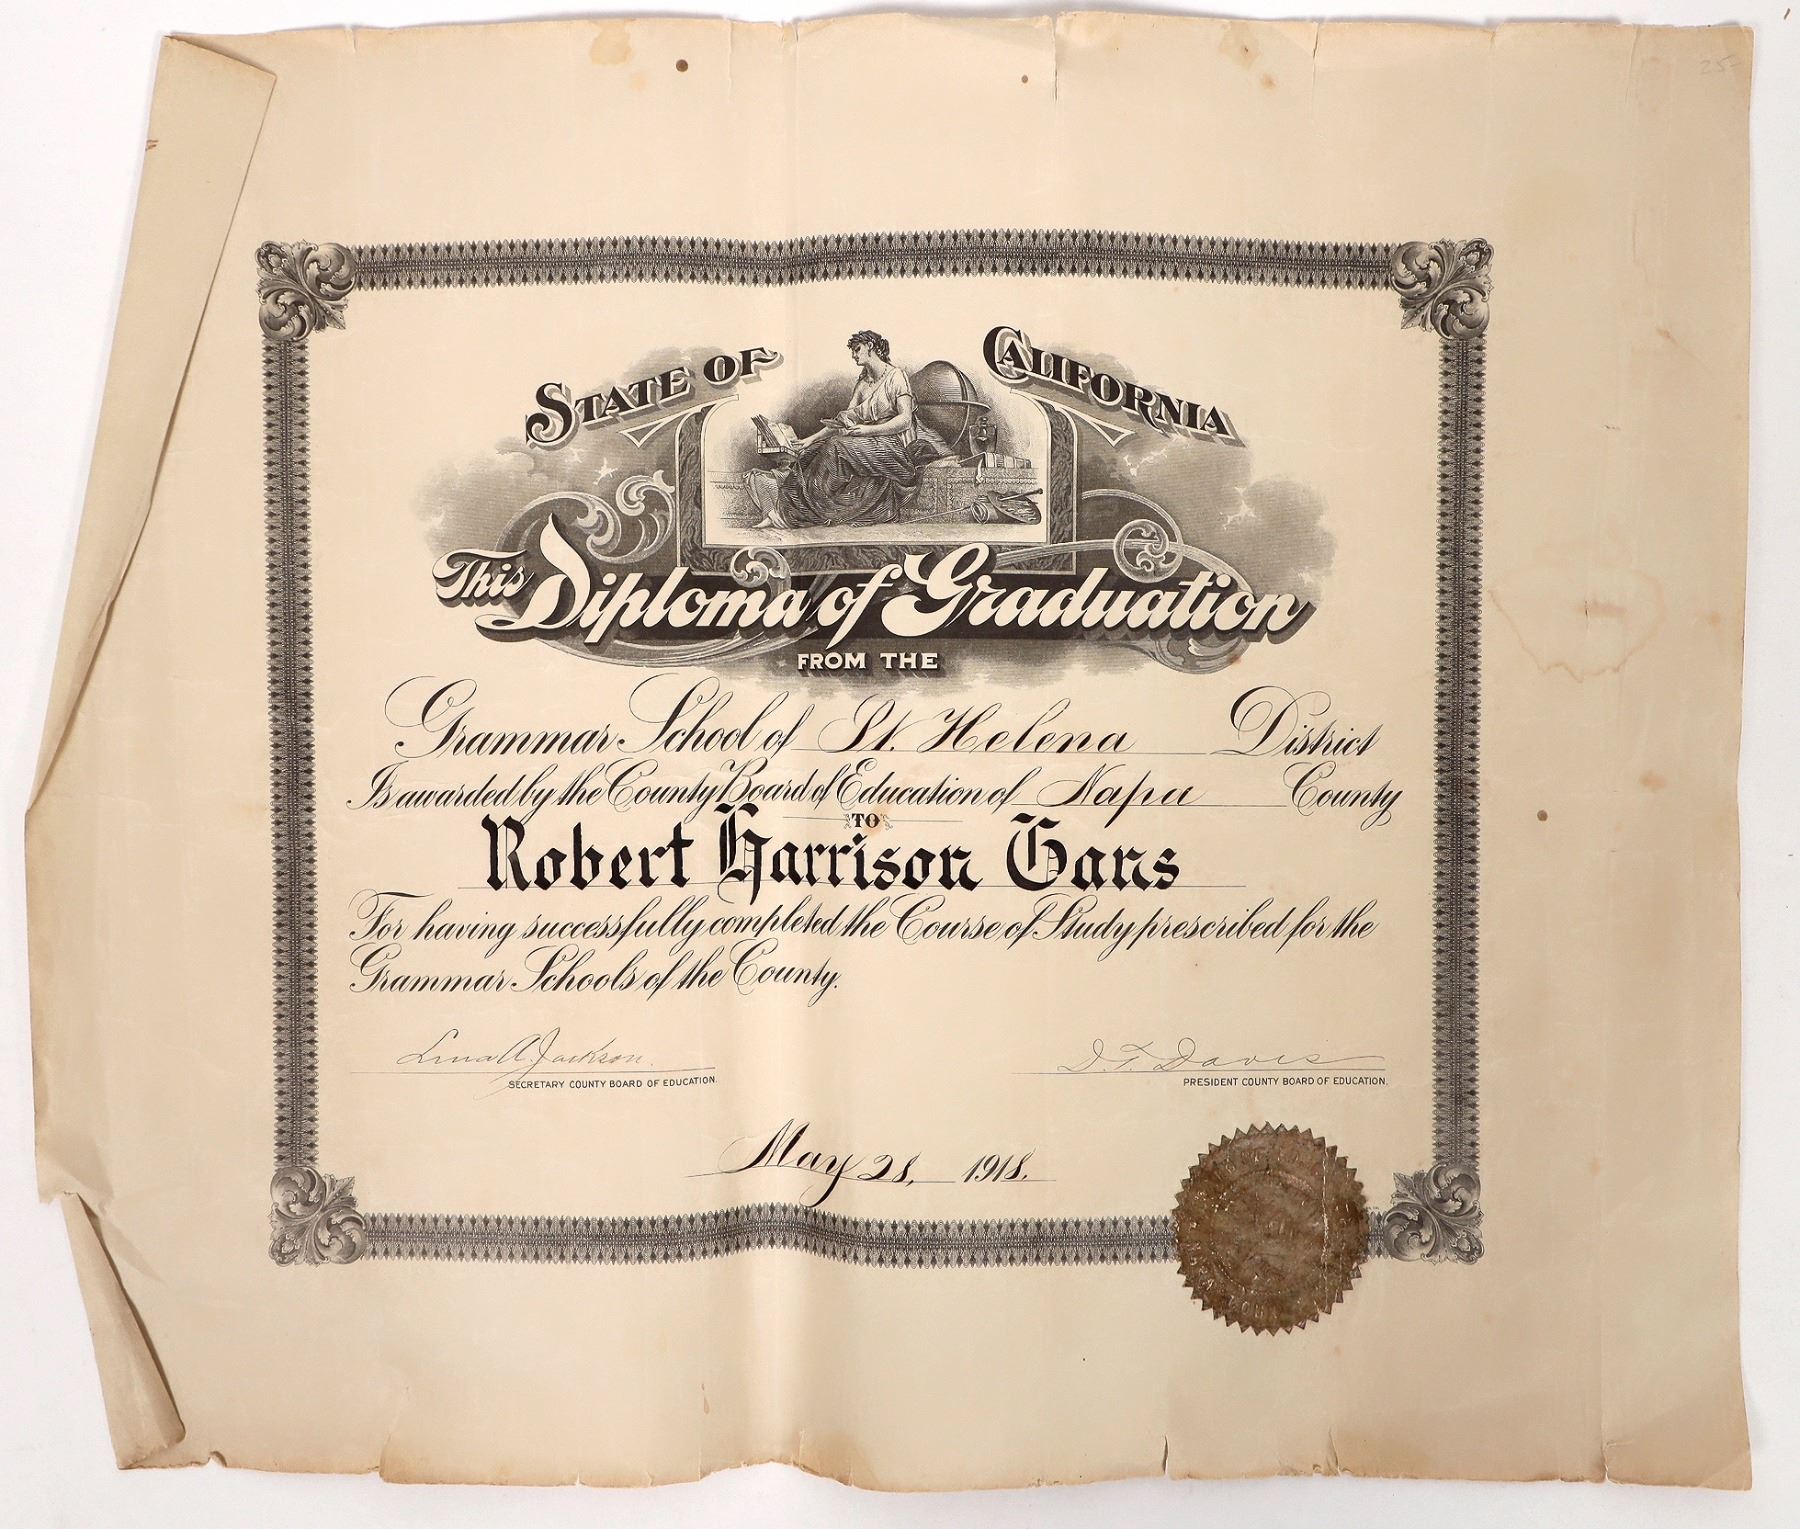 25-
STATE OF CALIFORNIA
This Diploma of Graduation
FROM THE
Grammar School of St. Helena District
Is awarded by the County Board of Education of Napa County
TO
Robert Harrison Gans
For having successfully completed the Course of Study prescribed for the
Grammar Schools of the County.
Lena A. Jackson. D. T. Davis
SECRETARY COUNTY BOARD OF EDUCATION. PRESIDENT COUNTY BOARD OF EDUCATION.
May 28, 1918.